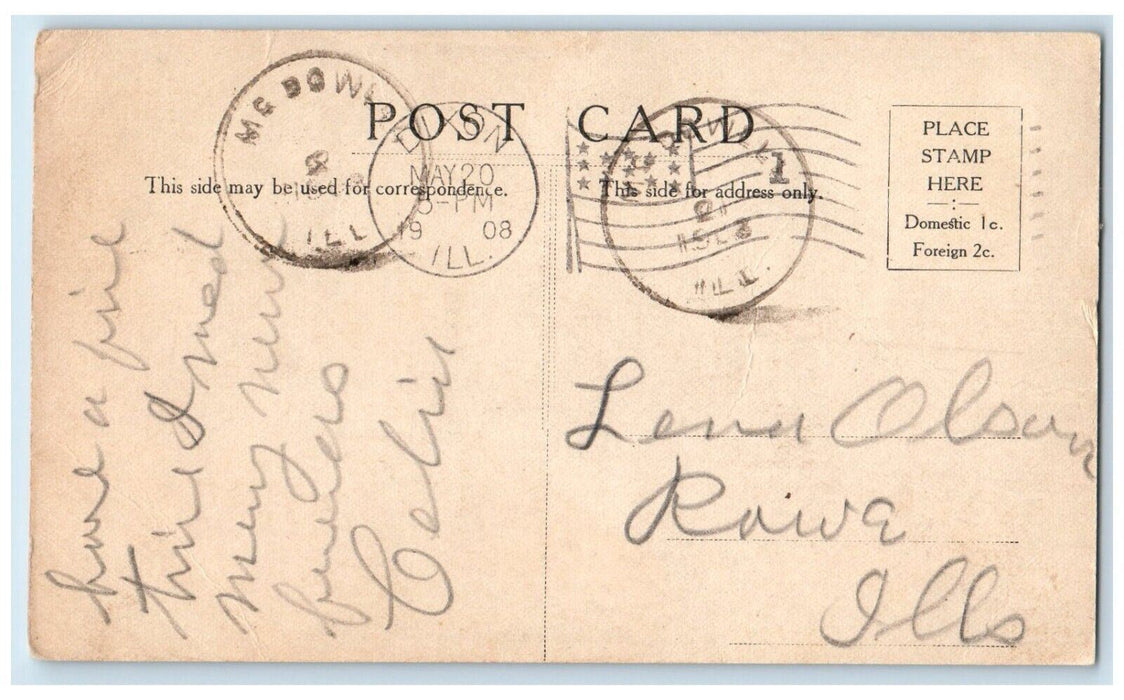 POST CARD
This side may be used for correspondence.
This side for address only.
PLACE
STAMP
HERE
Domestic 1c.
Foreign 2c.
MC DOWELL
ILL
DIXON
MAY 20
5-PM
19 08
ILL.
1
ILL.
have a fine
time I
many new
Lena Olson
Rowe
Ills